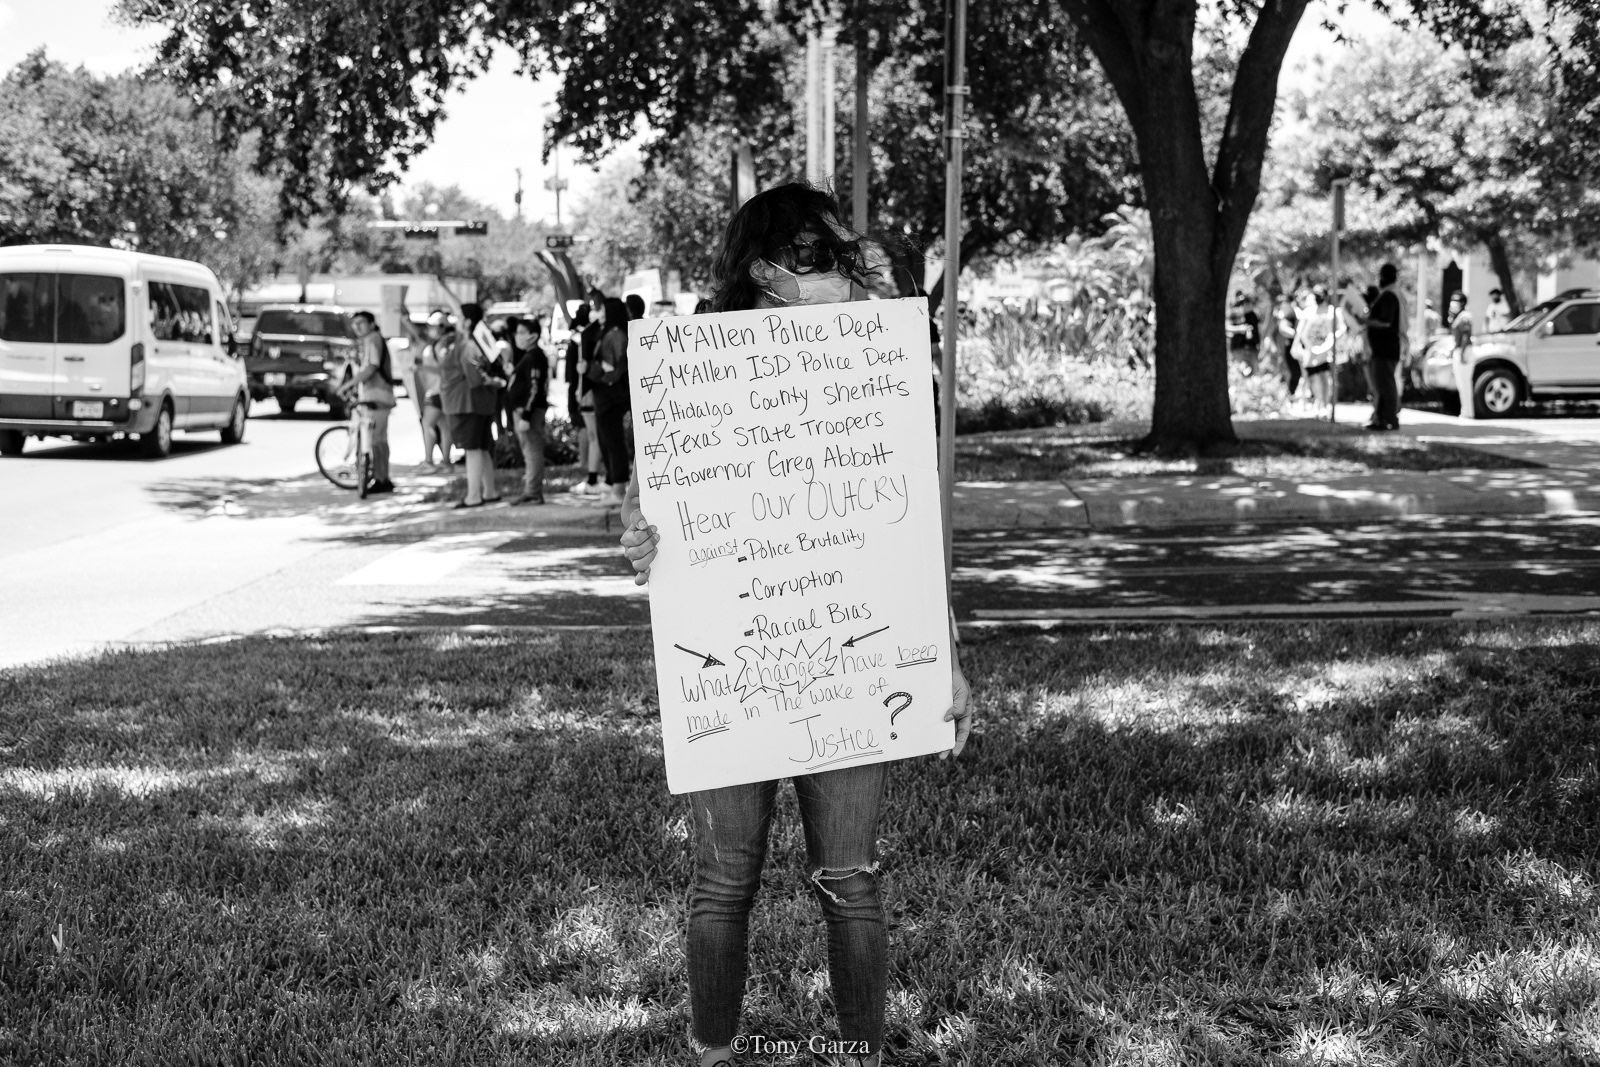 McAllen Police Dept.
McAllen ISD Police Dept.
Hidalgo County Sheriffs
Texas State Troopers
Governor Greg Abbott
Hear Our OUTCRY
against - Police Brutality
- Corruption
- Racial Bias
What changes have been
made in The wake of
Justice?
©Tony Garza